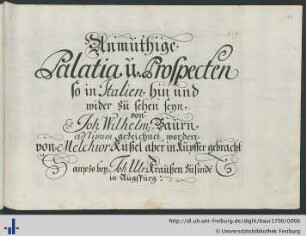 Anmüthige
Palatia ü. Prospecten
so in Italien hin und
wider zü sehen seyn.
von
Joh Wilhelm Baürn
ad vivum gezeichnet worden
von Melchior Küßel aber in Kupffer gebracht
anjezo bey Joh Ulr. Kraüßen zü finden
in Augspurg.
http://dl.ub.uni-freiburg.de/diglit/baur1700/0006
© Universitätsbibliothek Freiburg